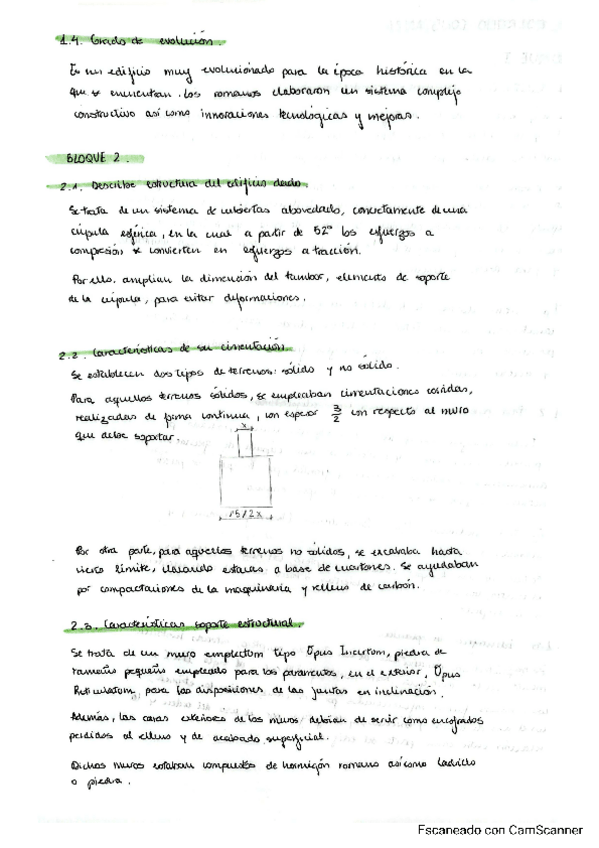 1.4. Grado de evolución.
Es un edificio muy evolucionado para la época histórica en la
que se encuentran. Los romanos elaboraron un sistema complejo
constructivo así como innovaciones tecnológicas y mejoras.
BLOQUE 2.
2.1. Describe estructura del edificio dado.
Se trata de un sistema de cubiertas abovedado, concretamente de una
cúpula esférica, en la cual a partir de 52º los esfuerzos a
compresión se convierten en esfuerzos a tracción.
Por ello, amplían la dimensión del tambor, elemento de soporte
de la cúpula, para evitar deformaciones.
2.2. Características de su cimentación.
Se establecen dos tipos de terrenos: sólido y no sólido.
Para aquellos terrenos sólidos, se empleaban cimentaciones corridas,
realizadas de forma continua, con espesor 3/2 con respecto al muro
que debe soportar.
x
Por otra parte, para aquellos terrenos no sólidos, se excavaba hasta
cierto límite, clavando estacas a base de cuartones. Se ayudaban
por compactaciones de la maquinaria y relleno de carbón.
2.3. Características soporte estructural.
Se trata de un muro emplectum tipo Opus Incertum, piedra de
tamaño pequeño empleado para los paramentos, en el exterior, Opus
Reticulatum, para las disposiciones de las juntas en inclinación.
Además, las caras exteriores de los muros debían de servir como encofrados
perdidos al relleno y de acabado superficial.
Dichos muros estaban compuestos de hormigón romano así como ladrillo
o piedra.
Escaneado con CamScanner